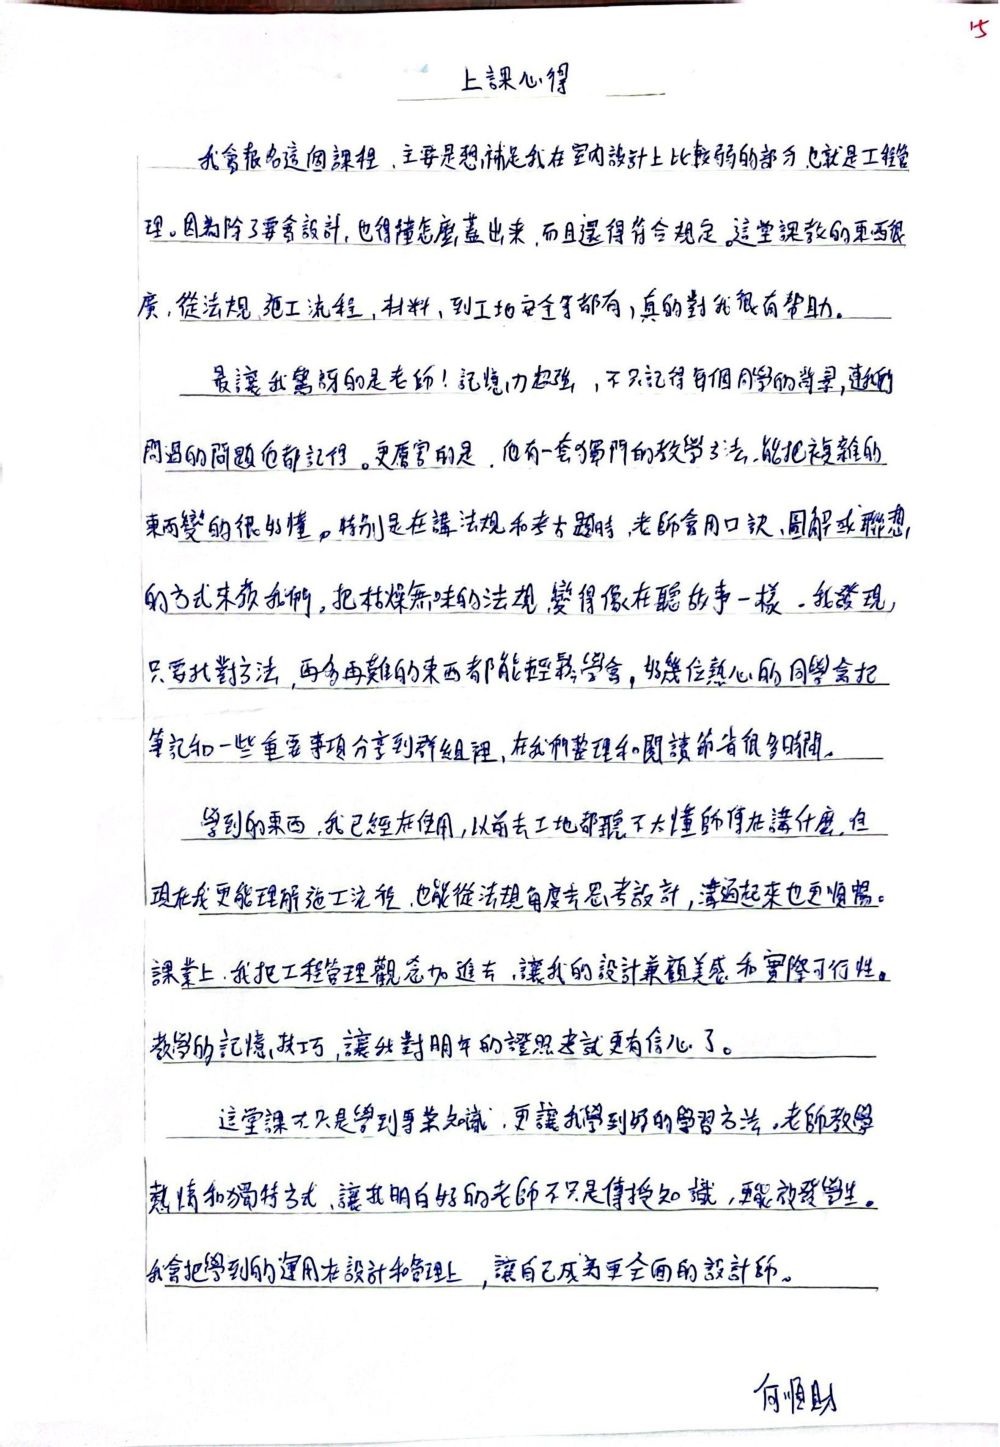 15
上課心得
我會報名這個課程，主要是想補足我在室內設計上比較弱的部分，也就是工程管
理。因為除了要會設計，也得懂怎麼蓋出來，而且還得符合規定。這堂課教的東西很
廣，從法規、施工流程，材料，到工地安全等都有，真的對我很有幫助。
最讓我驚訝的是老師！記憶力超強，不只記得每個同學的背景，連我們
問過的問題他都記得。更厲害的是，他有一套獨門的教學方法，能把複雜的
東西變的很好懂。特別是在講法規和考古題時，老師會用口訣、圖解或聯想，
的方式來教我們，把枯燥無味的法規，變得像在聽故事一樣。我發現，
只要找對方法，再多再難的東西都能輕鬆學會，好幾位熱心的同學會把
筆記和一些重要事項分享到群組裡，在我們整理和閱讀節省很多時間。
學到的東西，我已經在使用，以前去工地都聽不太懂師傅在講什麼，但
現在我更能理解施工流程，也能從法規角度去思考設計，溝通起來也更順暢。
課業上，我把工程管理觀念加進去，讓我的設計兼顧美感和實際可行性。
教學的記憶技巧，讓我對明年的證照考試更有信心了。
這堂課不只是學到專業知識，更讓我學到好的學習方法。老師教學
熱情和獨特方式，讓我明白好的老師不只是傳授知識，更能啟發學生。
我會把學到的運用在設計和管理上，讓自己成為更全面的設計師。
何順財